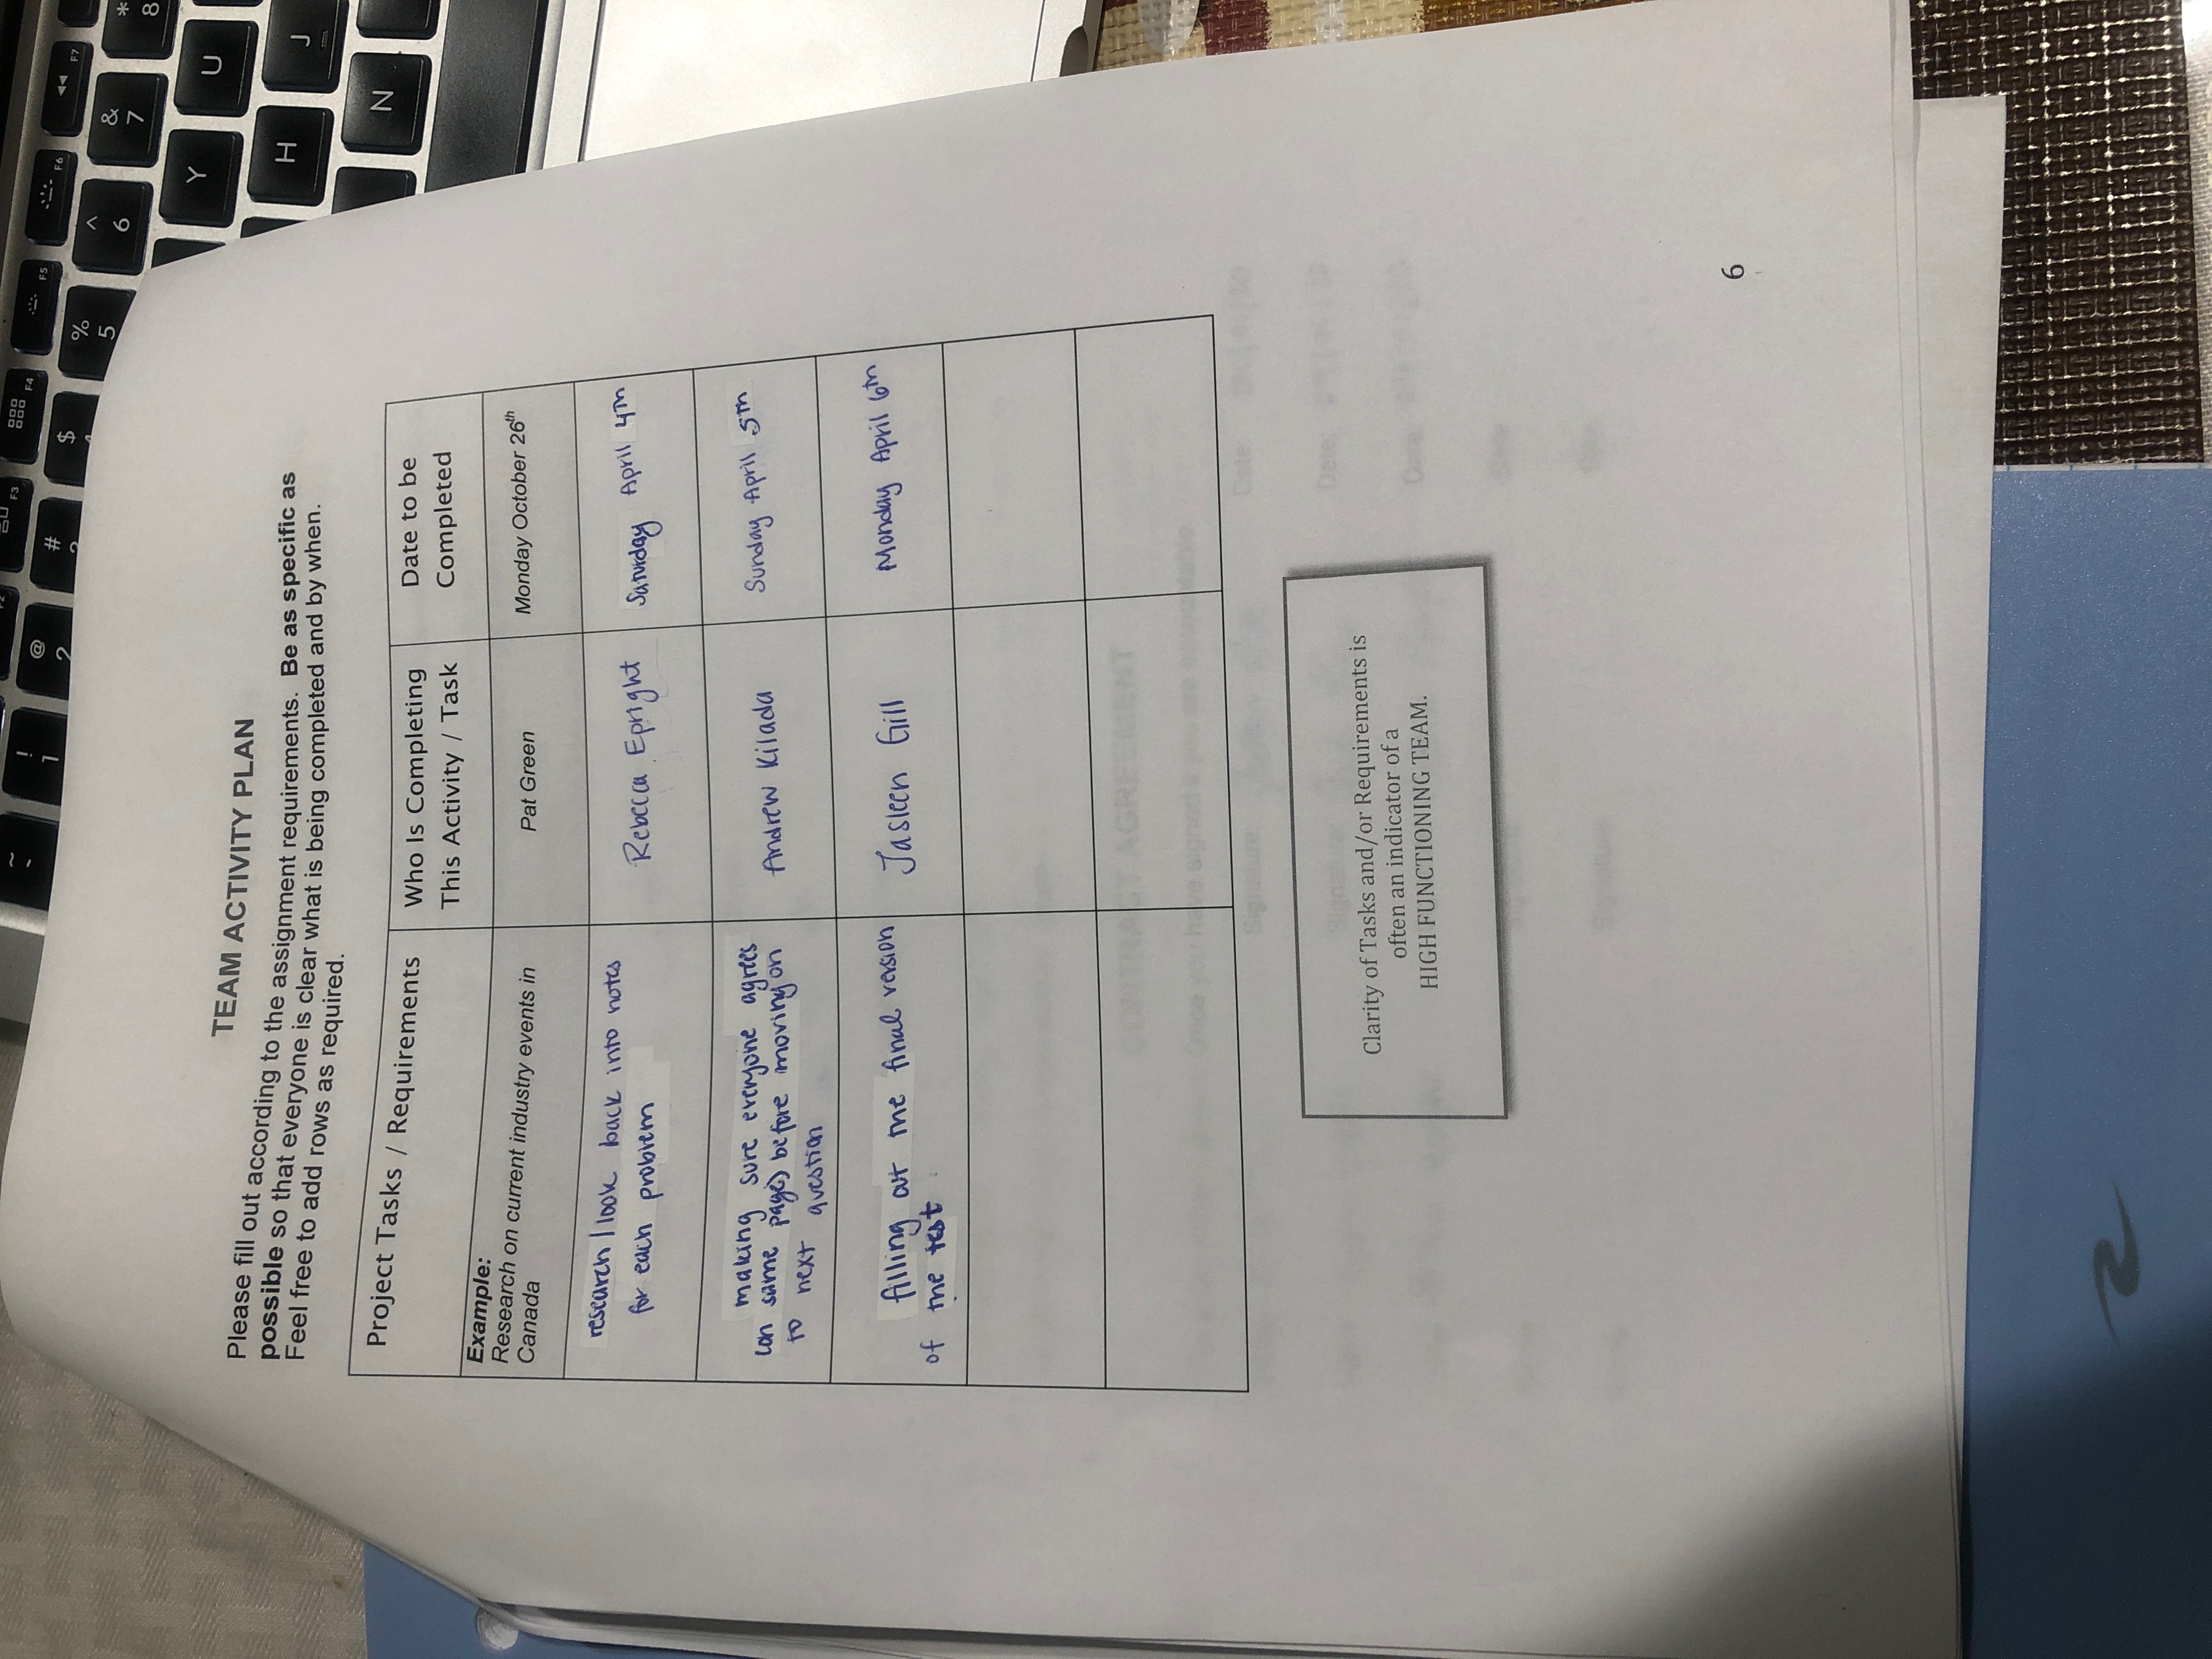 TEAM ACTIVITY PLAN
Please fill out according to the assignment requirements. Be as specific as
possible so that everyone is clear what is being completed and by when.
Feel free to add rows as required.
Project Tasks / Requirements
Who Is Completing
This Activity / Task
Date to be
Completed
Example:
Research on current industry events in
Canada
Pat Green
Monday October 26th
research / look back into notes
for each problem
Rebecca Epright
Saturday April 4th
making sure everyone agrees
(on same page) before moving on
to next question
Andrew Kilada
Sunday April 5th
filling out the final version
of the test
Jasleen Gill
Monday April 6th
CONTRACT AGREEMENT
Once you have signed it you are accountable
Signature
Date:
Signature:
Date:
Date:
Signature
Date
Signature
Clarity of Tasks and/or Requirements is
often an indicator of a
HIGH FUNCTIONING TEAM.
6
~
!
1
@
2
#
$
%
5
^
6
&
7
*
8
F3
F4
F5
F6
F7
Y
U
H
J
N